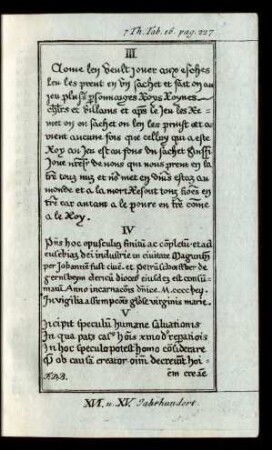 7 Th. Tab. 16. pag. 227
III
Come len veult jouer aux eschés
leu les prent en vn sachet et fait on au
jeu plusrs psonnaiges Roys Roynes
chlrs et villains et aps le jeu les Re
met on ou sachet ou len les prinst et a
vient aucune fois que celluy qui a esté
Roy au jeu est au fons du sachet
nous prent en la
tre tous nuz et nos met en diuers estaz au
monde et a la mort Resont tous hões en
tre car autant a le poure en tre côme
a le Roy.
IV
Pñs hoc opusculuȝ finitū ac cōpletū et ad
eusebiaȝ dei industrie in ciuitate Maguntiñ
per Johannē fust ciuē et Petrū schoiffher de
gernsheym clericū diotes eiusdeȝ est consu-
matū. Anno incarnacōnis dñice. M.cccc.lxij.
In vigilia assumpcōnis gl̄ose virginis marie.
V
Incipit speculū humane saluationis
In quo patȝ casꝰ hōis
In hoc speculo potest homo cōsiderare
Qȝ ob causā creator oīm decreuit hoi-
em creāe
XVI. u. XV. Jahrhundert.